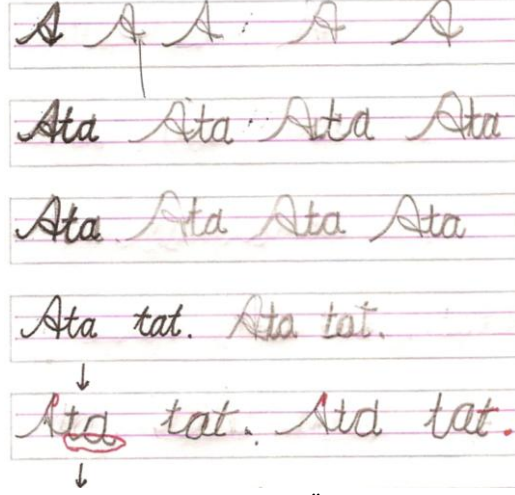 A A A A A
Ata Ata Ata Ata
Ata Ata Ata Ata
Ata tat. Ata tat.
Ata tat. Ata tat.